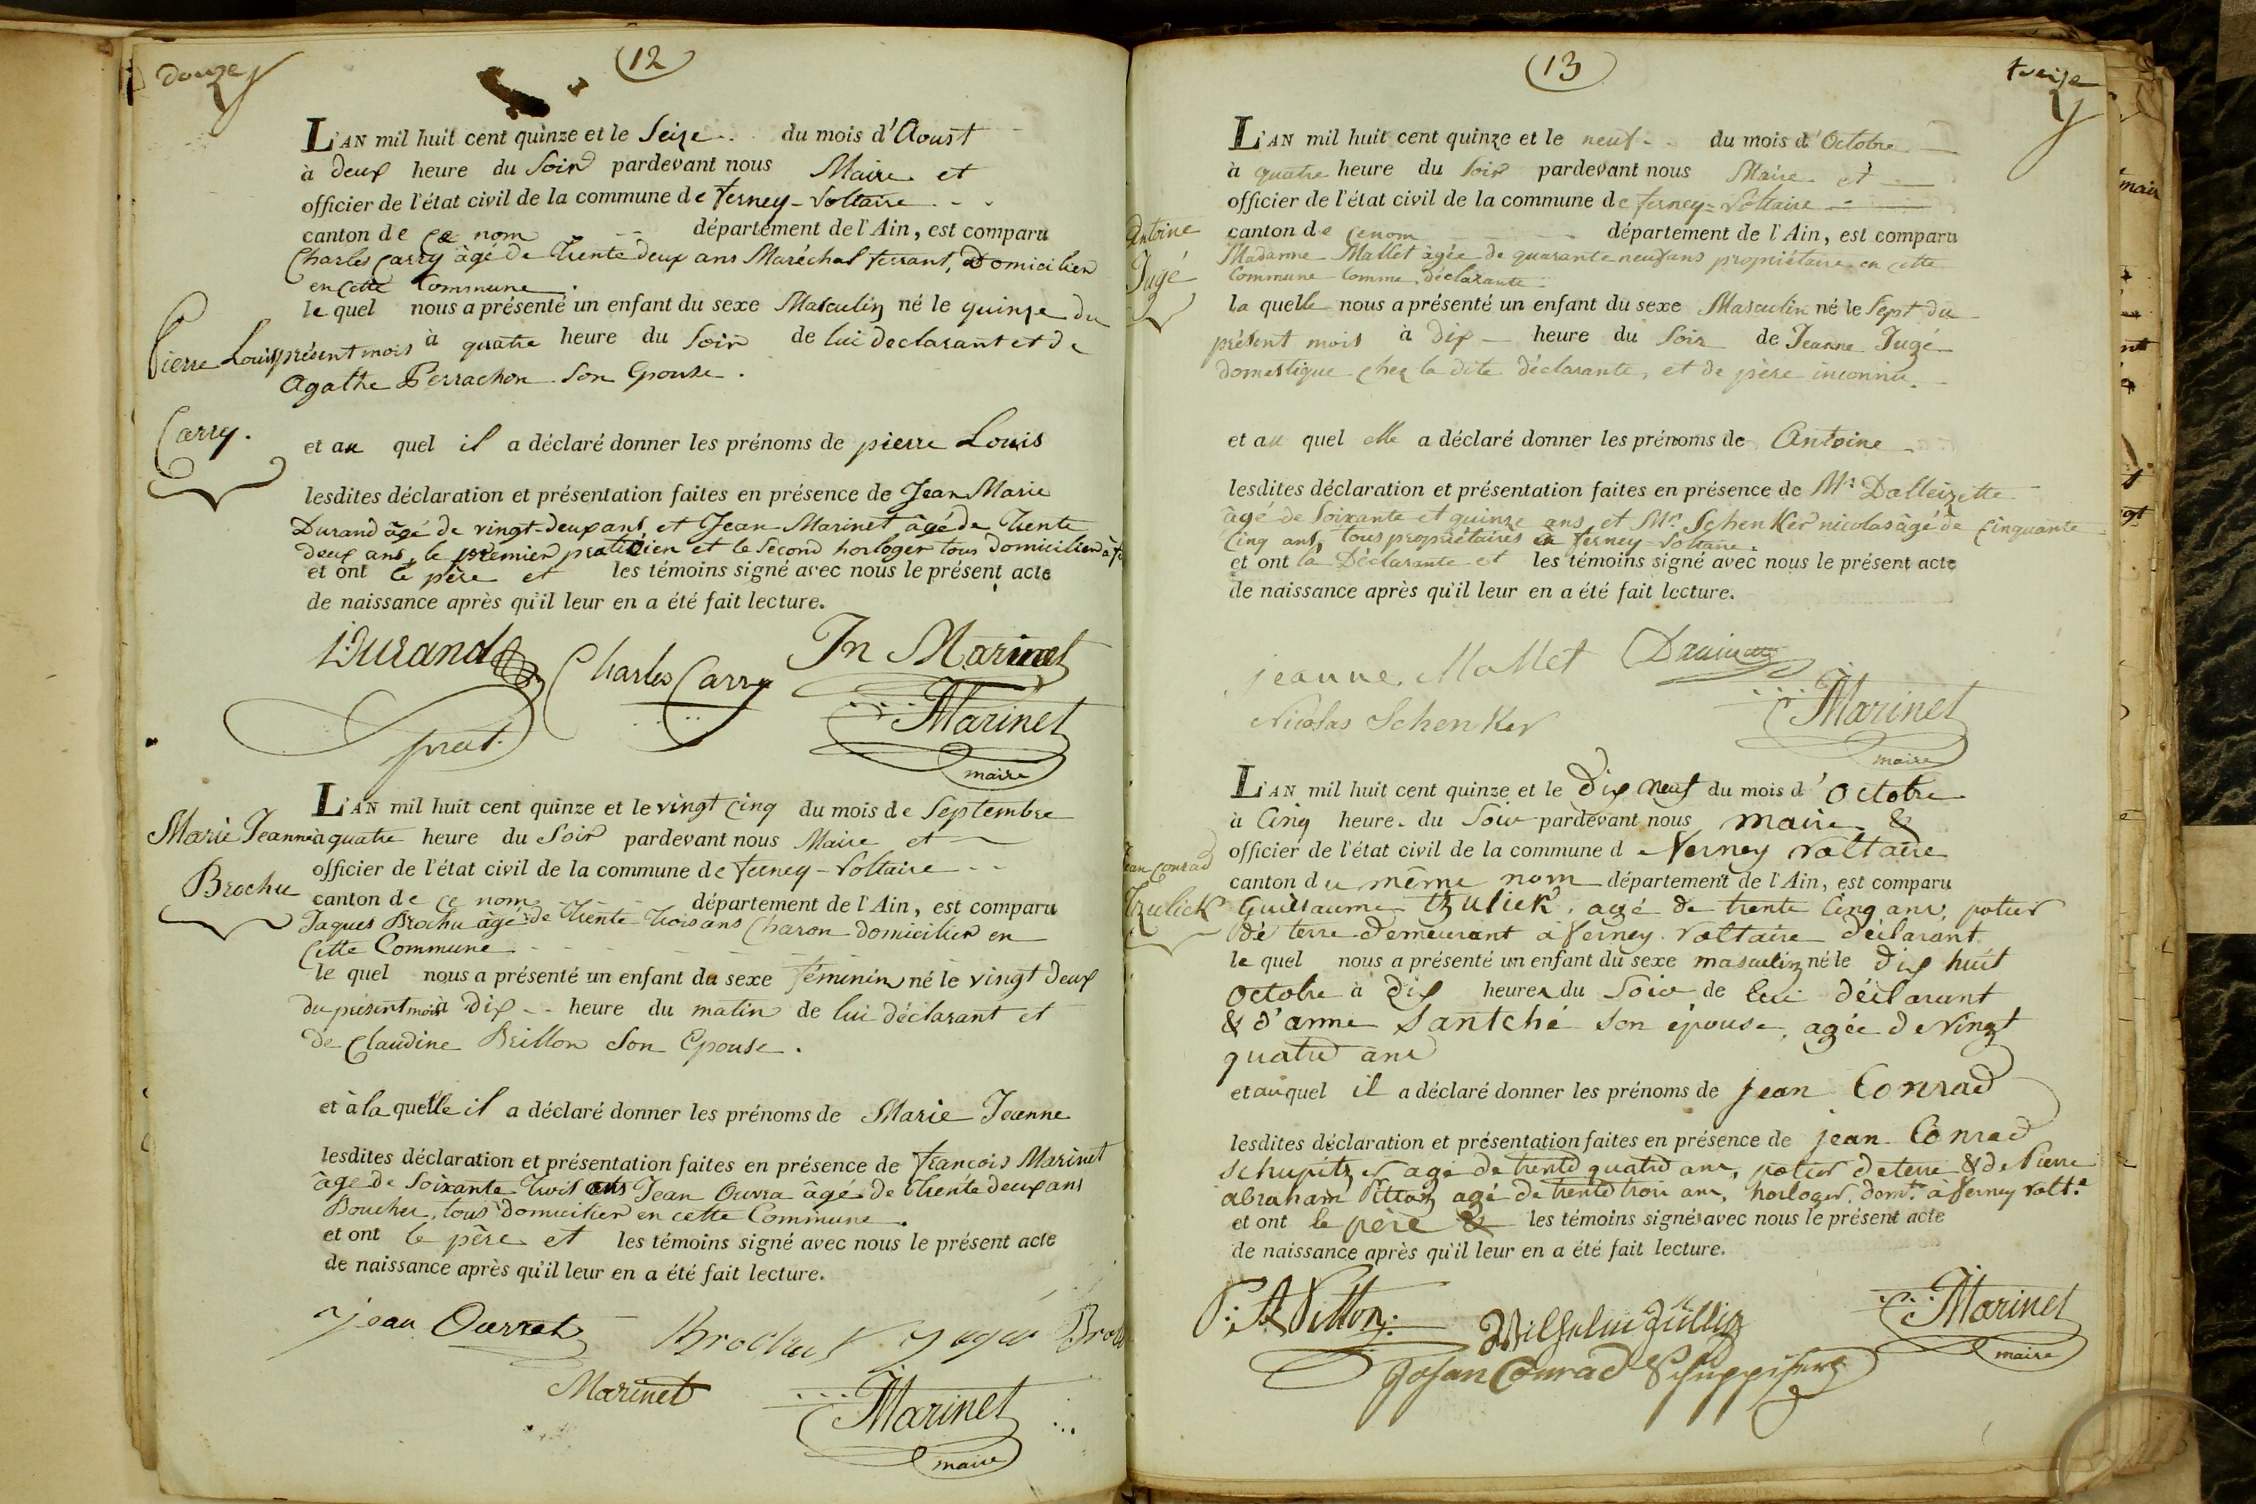 douze
(12)
L'AN mil huit cent quinze et le Seize du mois d'Aoust
à deux heure du Soir pardevant nous Maire et
officier de l'état civil de la commune de ferney-Voltaire
canton de ce nom département de l'Ain, est comparu
Charles Carry âgé de Trente deux ans Maréchal ferrant, Domicilier
en cette Commune.
le quel nous a présenté un enfant du sexe Masculin né le quinze du
présent mois à quatre heure du Soir de lui declarant et de
Agathe Perrachon Son Epouse.
Pierre Louis
Carry.
et au quel il a déclaré donner les prénoms de pierre Louis
lesdites déclaration et présentation faites en présence de Jean Marie
Durand âgé de vingt-deux ans et Jean Marinet âgé de Trente
deux ans, le premier praticien et le Second horloger tous domicilier à
et ont le père et les témoins signé avec nous le présent acte
de naissance après qu'il leur en a été fait lecture.
Durand
Charles Carry
Jn Marinet
prat.
Marinet
maire
L'AN mil huit cent quinze et le vingt Cinq du mois de Septembre
à quatre heure du Soir pardevant nous Maire et
officier de l'état civil de la commune de ferney-Voltaire
canton de ce nom département de l'Ain, est comparu
Jaques Brochu âgé de Trente trois ans Charon domicilier en
Cette Commune
Marie Jeanne
Brochu
le quel nous a présenté un enfant du sexe féminin né le vingt deux
du présent mois à dix heure du matin de lui déclarant et
de Claudine Brillon Son Epouse.
et à la quelle il a déclaré donner les prénoms de Marie Jeanne
lesdites déclaration et présentation faites en présence de francois Marinet
âgé de Soixante trois ans Jean Ouvra âgé de Trente deux ans
Boucher, tous domicilier en cette Commune.
et ont le père et les témoins signé avec nous le présent acte
de naissance après qu'il leur en a été fait lecture.
jean Ouvrat
Marinet
Marinet
maire
treize
(13)
L'AN mil huit cent quinze et le neuf du mois d'Octobre
à quatre heure du Soir pardevant nous Maire et
officier de l'état civil de la commune de ferney-Voltaire
canton de ce nom département de l'Ain, est comparu
Madamme Mallet âgée de quarante neuf ans propriétaire en cette
Commune Comme déclarante
Antoine
Jugé
la quelle nous a présenté un enfant du sexe Masculin né le Sept du
présent mois à dix heure du Soir de Jeanne Jugé
domestique chez la dite déclarante, et de père inconnu.
et au quel elle a déclaré donner les prénoms de Antoine
lesdites déclaration et présentation faites en présence de Mr Dalleizette
âgé de Soixante et quinze ans et Mr Schenker nicolas âgé de Cinquante
Cinq ans, tous propriétaires à ferney-Voltaire.
et ont la Déclarante et les témoins signé avec nous le présent acte
de naissance après qu'il leur en a été fait lecture.
jeanne Mallet
Nicolas Schenker
Marinet
maire
L'AN mil huit cent quinze et le Dix neuf du mois d'Octobre
à Cinq heure du Soir pardevant nous maire &
officier de l'état civil de la commune d ferney voltaire
canton du même nom département de l'Ain, est comparu
Guillaume tzulick, agé de trente Cinq ans, potier
de terre demeurant à ferney voltaire déclarant
Jean Conrad
tzulick
le quel nous a présenté un enfant du sexe masculin né le dix huit
octobre à Dix heures du Soir de lui déclarant
& d'anne Santché son épouse, agée de vingt
quatre ans
et au quel il a déclaré donner les prénoms de jean Conrad
lesdites déclaration et présentation faites en présence de jean Conrad
Schupitzer agé de trente quatre ans, potier de terre & de Pierre
abraham Pitton agé de trente trois ans, horloger, domts à ferney volt.e
et ont le père & les témoins signés avec nous le présent acte
de naissance après qu'il leur en a été fait lecture.
P. A. Pitton
Wilhelm Züllig
Johan Conrad Schuppiser
Marinet
maire